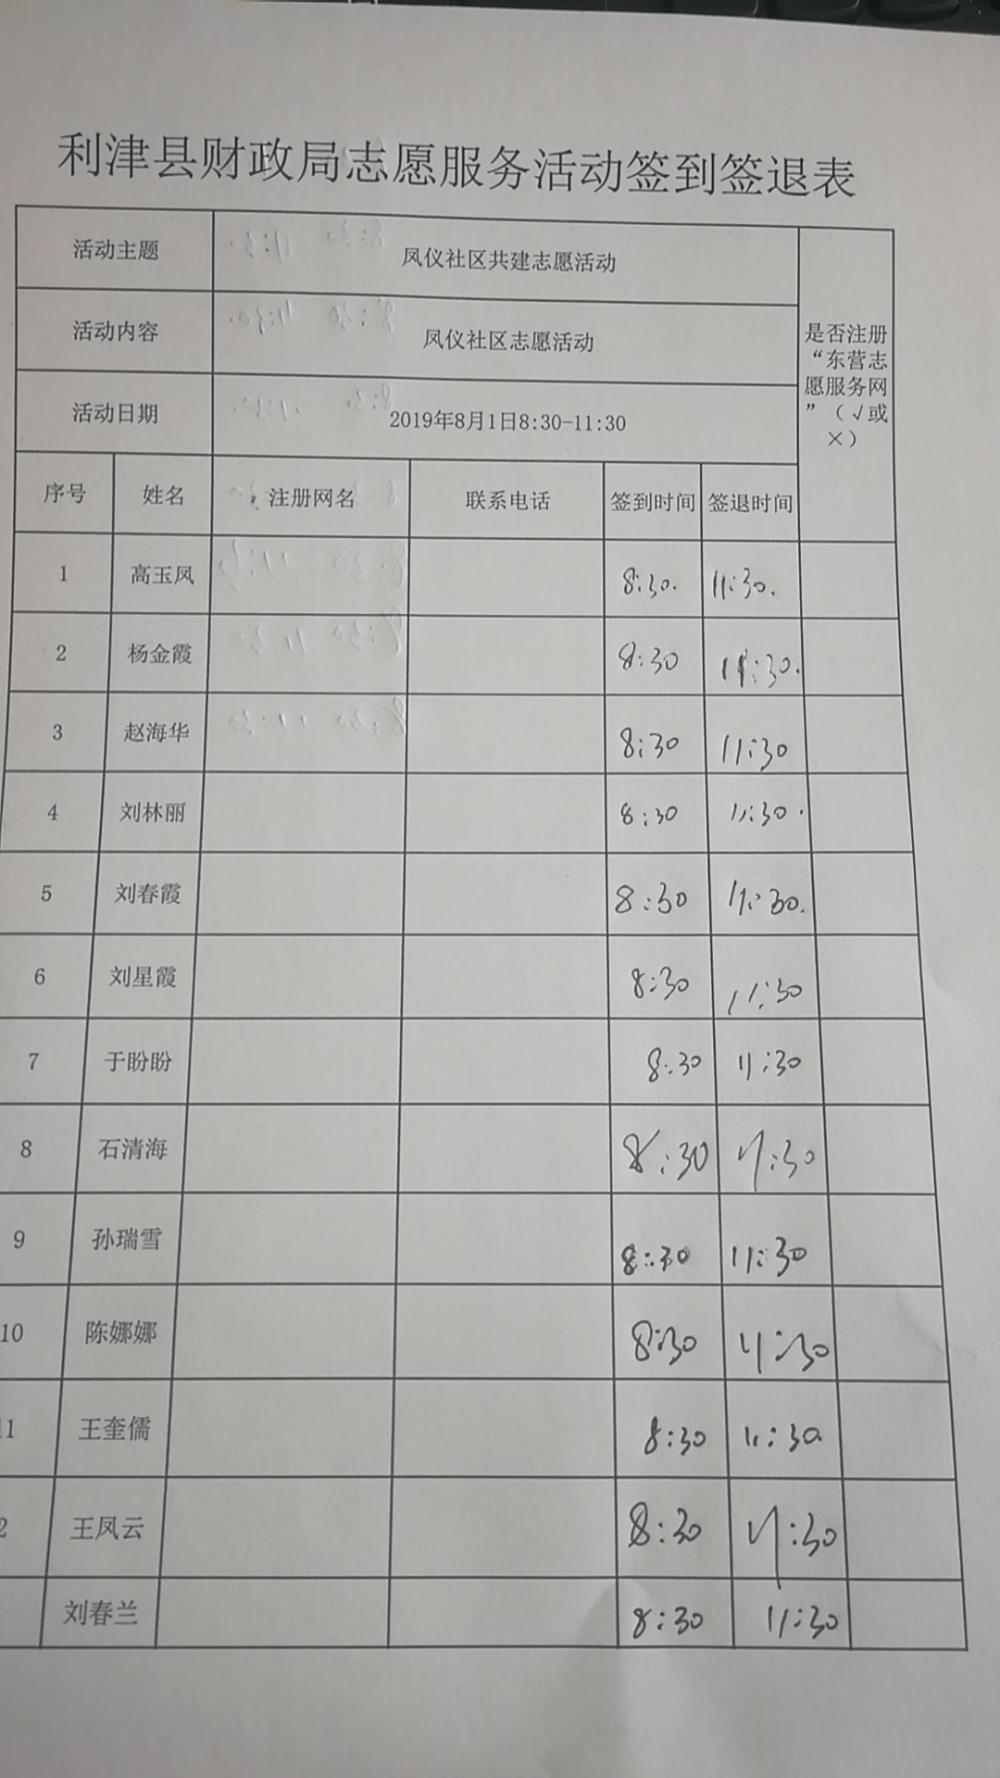 利津县财政局志愿服务活动签到签退表
活动主题 凤仪社区共建志愿活动
活动内容 凤仪社区志愿活动
活动日期 2019年8月1日8:30-11:30
是否注册
“东营志
愿服务网
”（√或
×）
序号 姓名 注册网名 联系电话 签到时间 签退时间
1 高玉凤 8:30. 11:30.
2 杨金霞 8:30 11:30.
3 赵海华 8:30 11:30
4 刘林丽 8:30 11:30.
5 刘春霞 8:30 11:30.
6 刘星霞 8:30 11:30
7 于盼盼 8:30 11:30
8 石清海 8:30 11:30
9 孙瑞雪 8:30 11:30
10 陈娜娜 8:30 11:30
11 王奎儒 8:30 11:30
2 王凤云 8:30 11:30
刘春兰 8:30 11:30